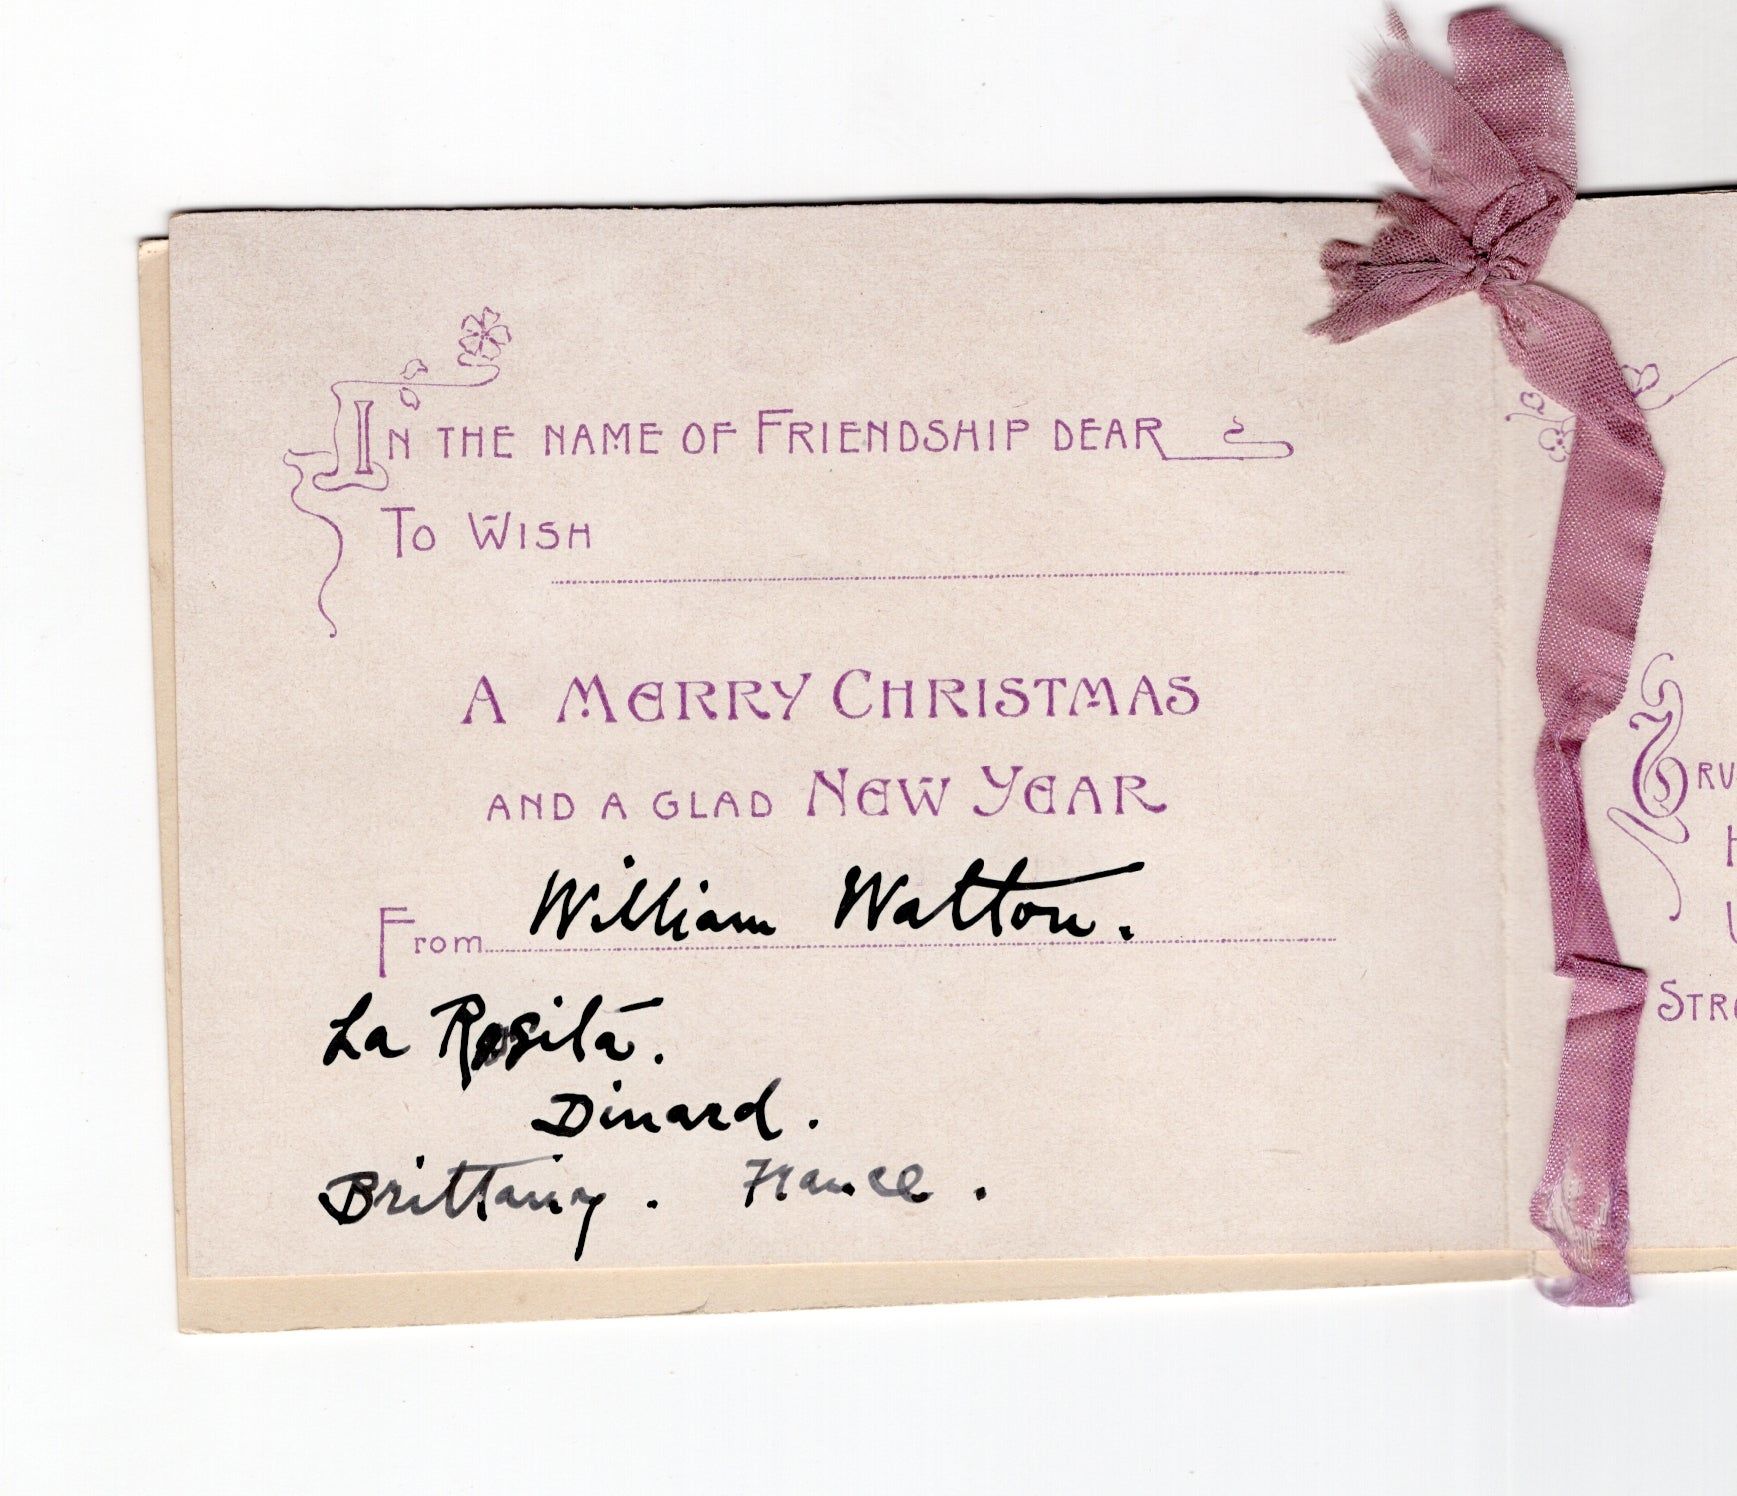 In the name of Friendship dear
To Wish
A Merry Christmas
and a glad New Year
From William Walton.
La Rosita.
Dinard.
Brittany. France.
Str